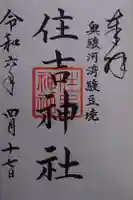 奉拝
奥駿河湾駿豆境
住吉神社
令和六年 四月十七日